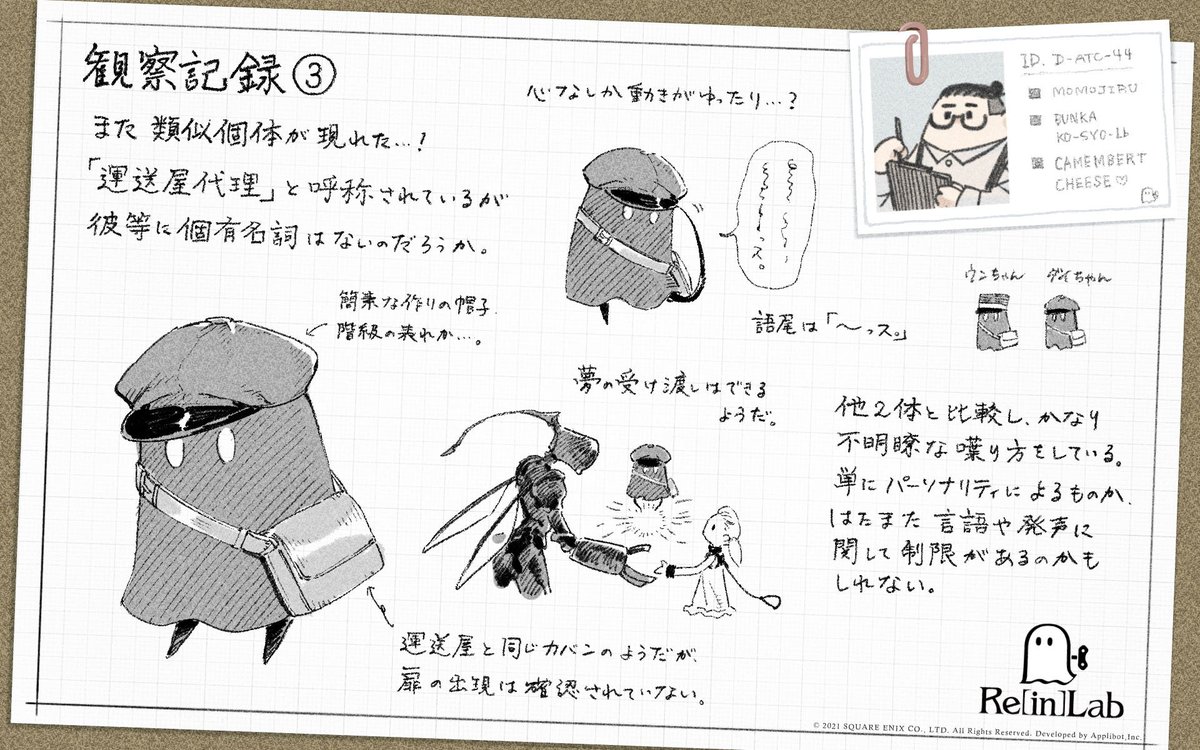 観察記録③
また類似個体が現れた…!
「運送屋代理」と呼称されているが
彼等に個有名詞はないのだろうか。
簡素な作りの帽子.
階級の表れか…。
心なしか動きがゆったり…?
ッス。
語尾は「〜っス。」
ID. D-ATC-44
MOMOJIRU
BUNKA
KO-SYO-1b
CAMEMBERT
CHEESE♡
ウンちゃん
ダイちゃん
夢の受け渡しはできる
ようだ。
他2体と比較し、かなり
不明瞭な喋り方をしている。
単にパーソナリティによるものか、
はたまた言語や発声に
関して制限があるのかも
しれない。
運送屋と同じカバンのようだが、
扉の出現は確認されていない。
Re[in]Lab
© 2021 SQUARE ENIX CO., LTD. All Rights Reserved. Developed by Applibot,Inc.